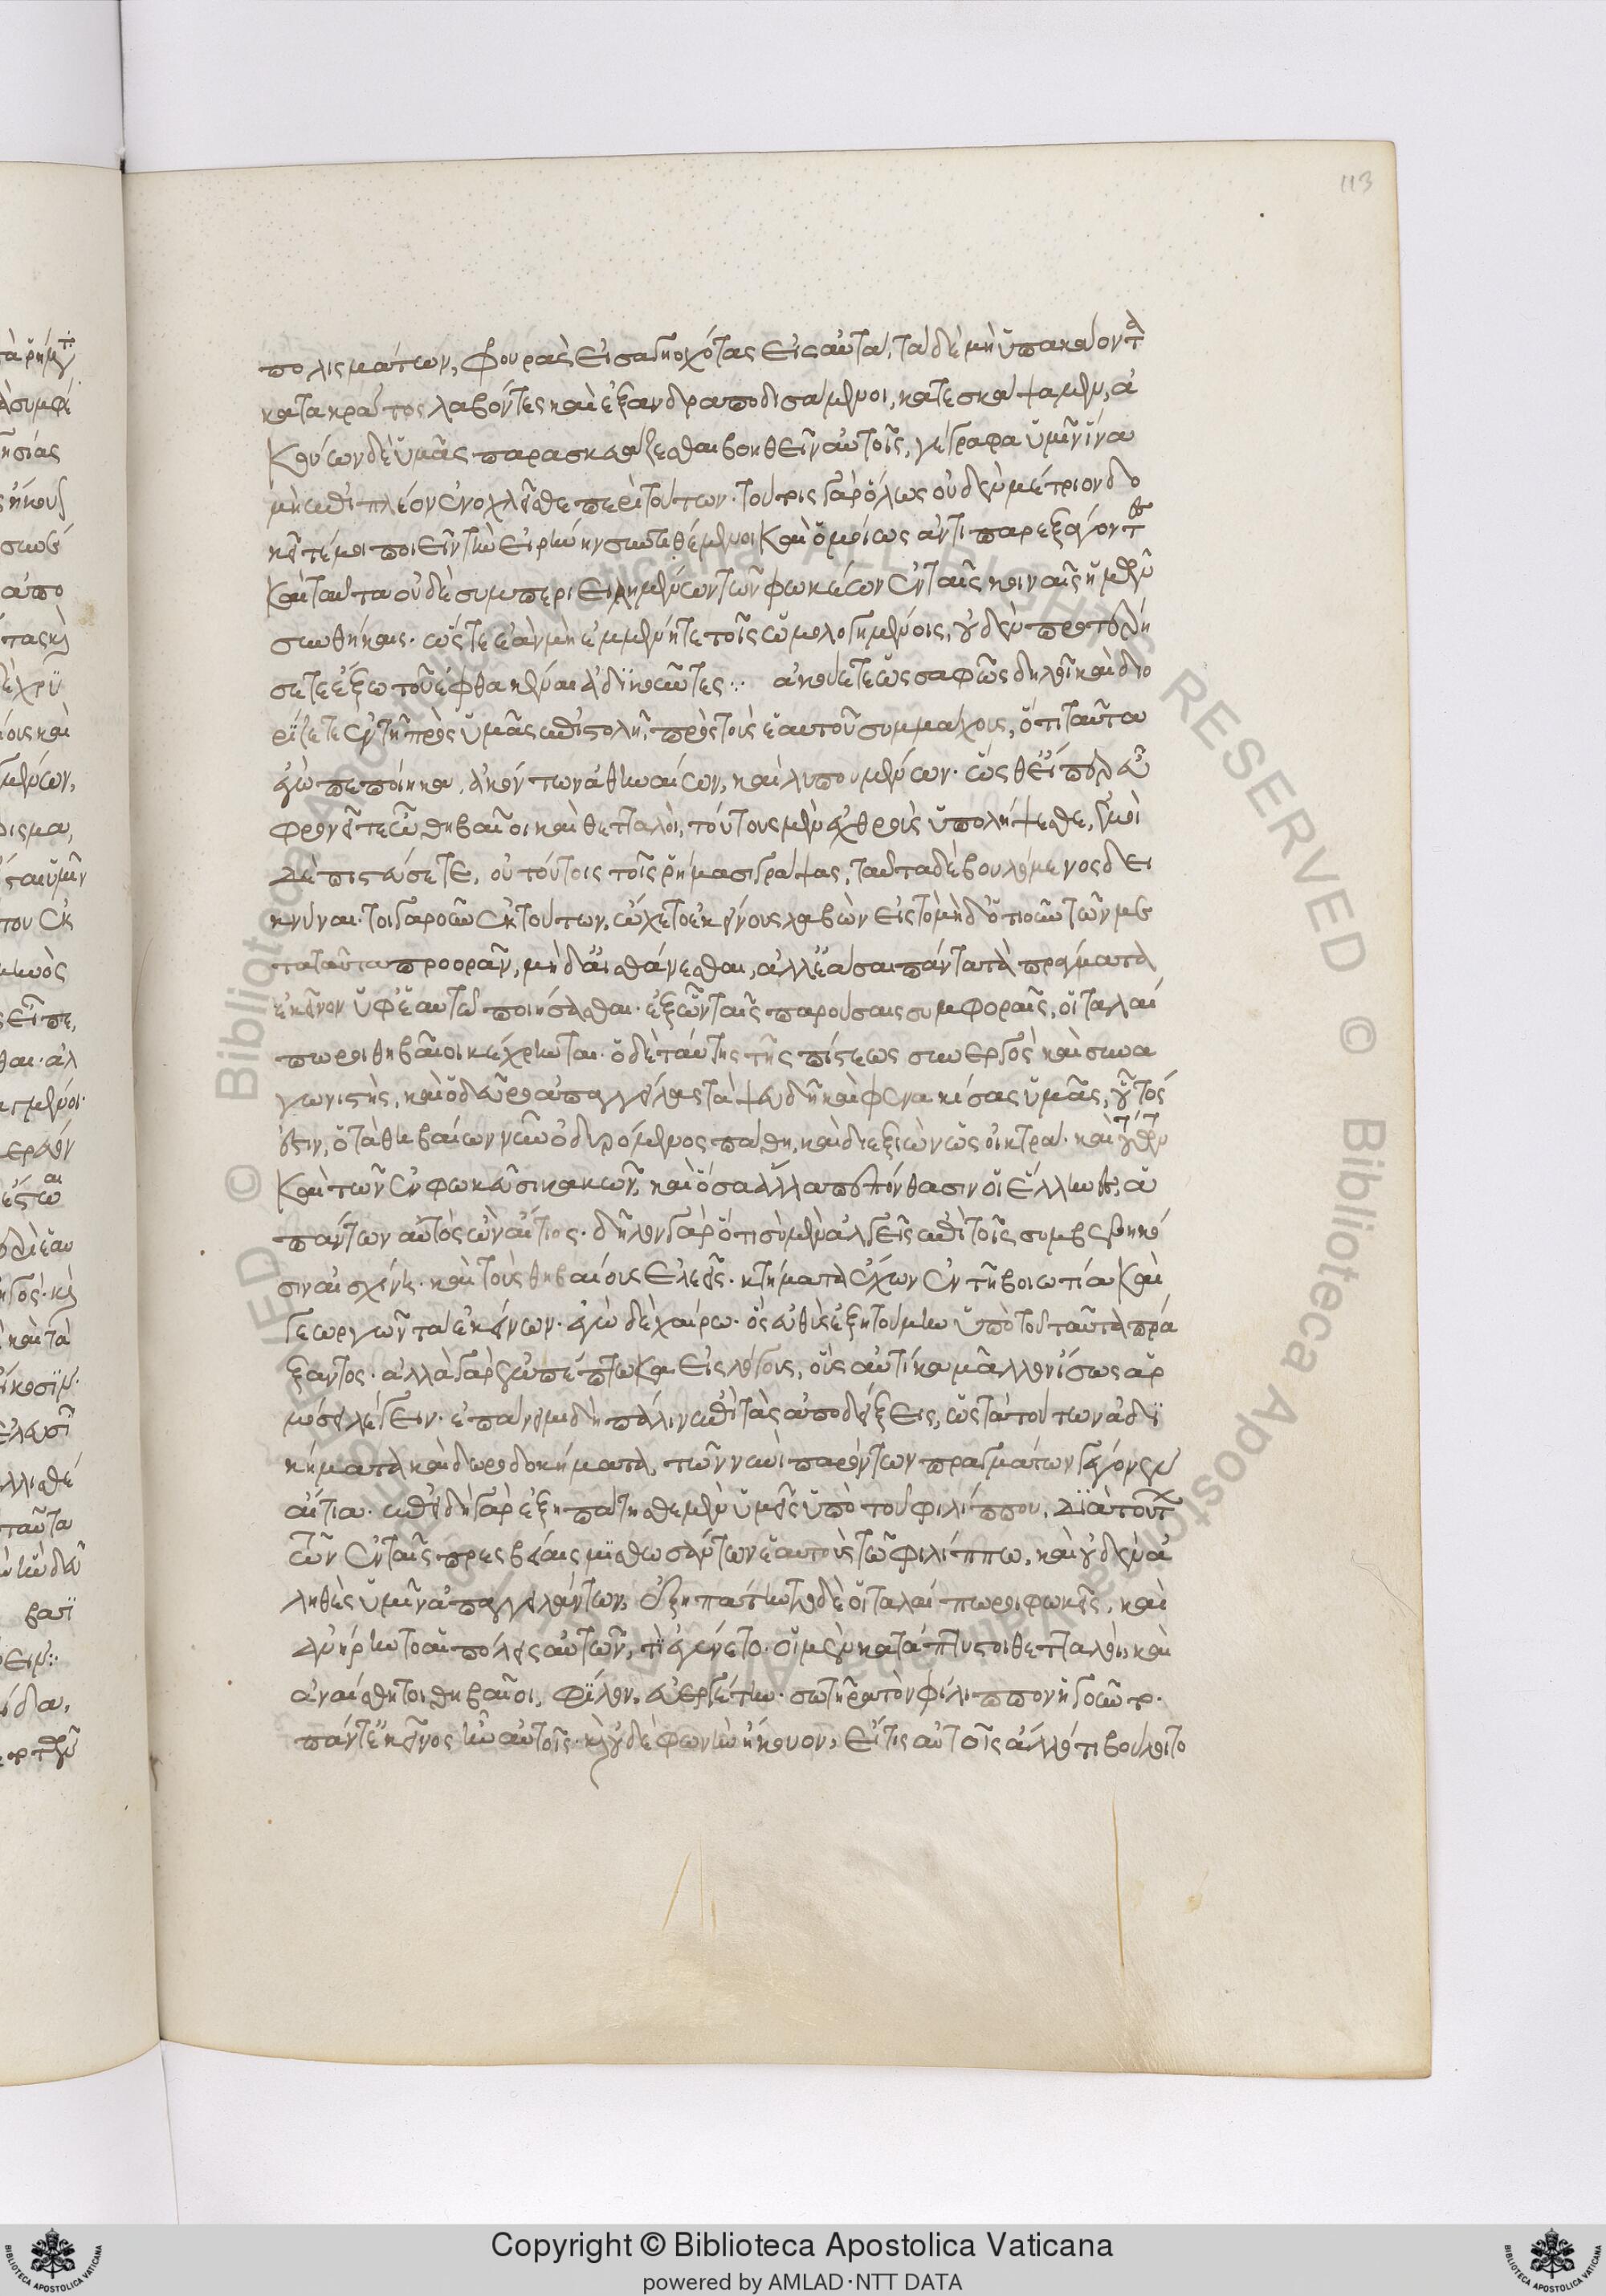 113
πολισμάτων, φρουρὰς εἰσαγηοχότας εἰς αὐτά, τὰ δὲ μὴ ὑπακούοντα
κατακράτος λαβόντες καὶ ἐξανδραποδισάμενοι, κατεσκάψαμεν, ἀ
κούων δὲ ὑμᾶς παρασκευάζεσθαι βοηθεῖν αὐτοῖς, γέγραφα ὑμῖν ἵνα
μὴ ἐπὶ πλέον ἐνοχλεῖσθε περὶ τούτων. τοῖς γὰρ ὅλως οὐδὲν μέτριον δο
κεῖτέ μοι ποιεῖν τὴν εἰρήνην συνθέμενοι καὶ ὁμοίως ἀντιπαρεξάγοντες
καὶ ταῦτα οὐδὲ συμπεριειλημμένων τῶν φωκέων ἐν ταῖς κοιναῖς ἡμῶν
συνθήκαις. ὥστε ἐὰν μὴ ἐμμένητε τοῖς ὡμολογημένοις, οὐδὲν προτερή
σετε ἔξω τοῦ ἐφθακέναι ἀδικοῦντες: ἀκούετε ὡς σαφῶς δηλοῖ καὶ διο
ρίζεται ἐν τῇ πρὸς ὑμᾶς ἐπιστολῇ, πρὸς τοὺς ἑαυτοῦ συμμάχους, ὅτι ταῦτα
ἐγὼ πεποίηκα, ἀκόντων ἀθηναίων, καὶ λυπουμένων. ὥστ' εἴπερ εὖ
φρονεῖτε ὦ θηβαῖοι καὶ θετταλοὶ, τούτους μὲν ἐχθροὺς ὑπολήψεσθε, ἐμοὶ
δὲ πιστεύσετε, οὐ τούτοις τοῖς ῥήμασι γράψας, ταῦτα δὲ βουλόμενος δει
κνύναι. τοιγαροῦν ἐκ τούτων, ὤχετο ἐκείνους λαβὼν εἰς τὸ μηδοτιοῦν τῶν με
τὰ ταῦτα προορᾶν, μηδ' αἰσθάνεσθαι, ἀλλ' ἐᾶσαι πάντα τὰ πράγματα
ἐκεῖνον ὑφ' ἑαυτῷ ποιήσασθαι. ἐξ ὧν ταῖς παρούσαις συμφοραῖς, οἱ ταλαί
πωροι θηβαῖοι κέχρηνται. ὁ δὲ ταύτης τῆς πίστεως συνεργὸς καὶ συνα
γωνιστὴς, καὶ ὁ δεῦρο ἀπαγγείλας τὰ ψευδῆ καὶ φενακίσας ὑμᾶς, οὗτός
ἐστιν, ὁ τὰ θηβαίων νῦν ὀδυρόμενος πάθη, καὶ διεξιὼν ὡς οἰκτρά. καὶ τούτων
καὶ τῶν ἐν φωκεῦσι κακῶν, καὶ ὅσα ἄλλα πεπόνθασιν οἱ ἕλληνες, ἁ
πάντων αὐτὸς ὢν αἴτιος. δῆλον γὰρ ὅτι σὺ μὲν ἀλγεῖς ἐπὶ τοῖς συμβεβηκό
σιν αἰσχίνη. καὶ τοὺς θηβαίους ἐλεεῖς. κτήματα ἔχων ἐν τῇ βοιωτίᾳ καὶ
γεωργῶν τὰ ἐκείνων. ἐγὼ δὲ χαίρω. ὃς εὐθὺς ἐξῃτούμην ὑπὸ τοῦ ταῦτα πρά
ξαντος. ἀλλὰ γὰρ ἐμπέπτωκα εἰς λόγους, οὓς αὐτίκα μᾶλλον ἴσως ἁρ
μόσει λέγειν. ἐπάνειμι δὴ πάλιν ἐπὶ τὰς ἀποδείξεις, ὡς τὰ τούτων ἀδι
κήματα καὶ δωροδοκήματα, τῶν νυνὶ παρόντων πραγμάτων γέγονεν
αἴτια. ἐπειδὴ γὰρ ἐξηπάτησθε μὲν ὑμεῖς ὑπὸ τοῦ φιλίππου, διὰ τούτων
τῶν ἐν ταῖς πρεσβείαις μισθωσάντων ἑαυτοὺς τῷ φιλίππῳ, καὶ οὐδὲν ἀ
ληθὲς ὑμῖν ἀπαγγειλάντων, ἐξηπάτηντο δὲ οἱ ταλαίπωροι φωκεῖς, καὶ
ἀνῄρηντο αἱ πόλεις αὐτῶν, τί ἐγένετο. οἱ μὲν κατάπτυστοι θετταλοί, καὶ
ἀναίσθητοι θηβαῖοι, φίλον, εὐεργέτην. σωτῆρα τὸν φίλιππον ἡγοῦντο.
πάντ' ἐκεῖνος ἦν αὐτοῖς. καὶ οὐδὲ φωνὴν ἤκουον, εἴ τις αὐτοῖς ἀλλό τι βούλοιτο
Copyright © Biblioteca Apostolica Vaticana
powered by AMLAD·NTT DATA